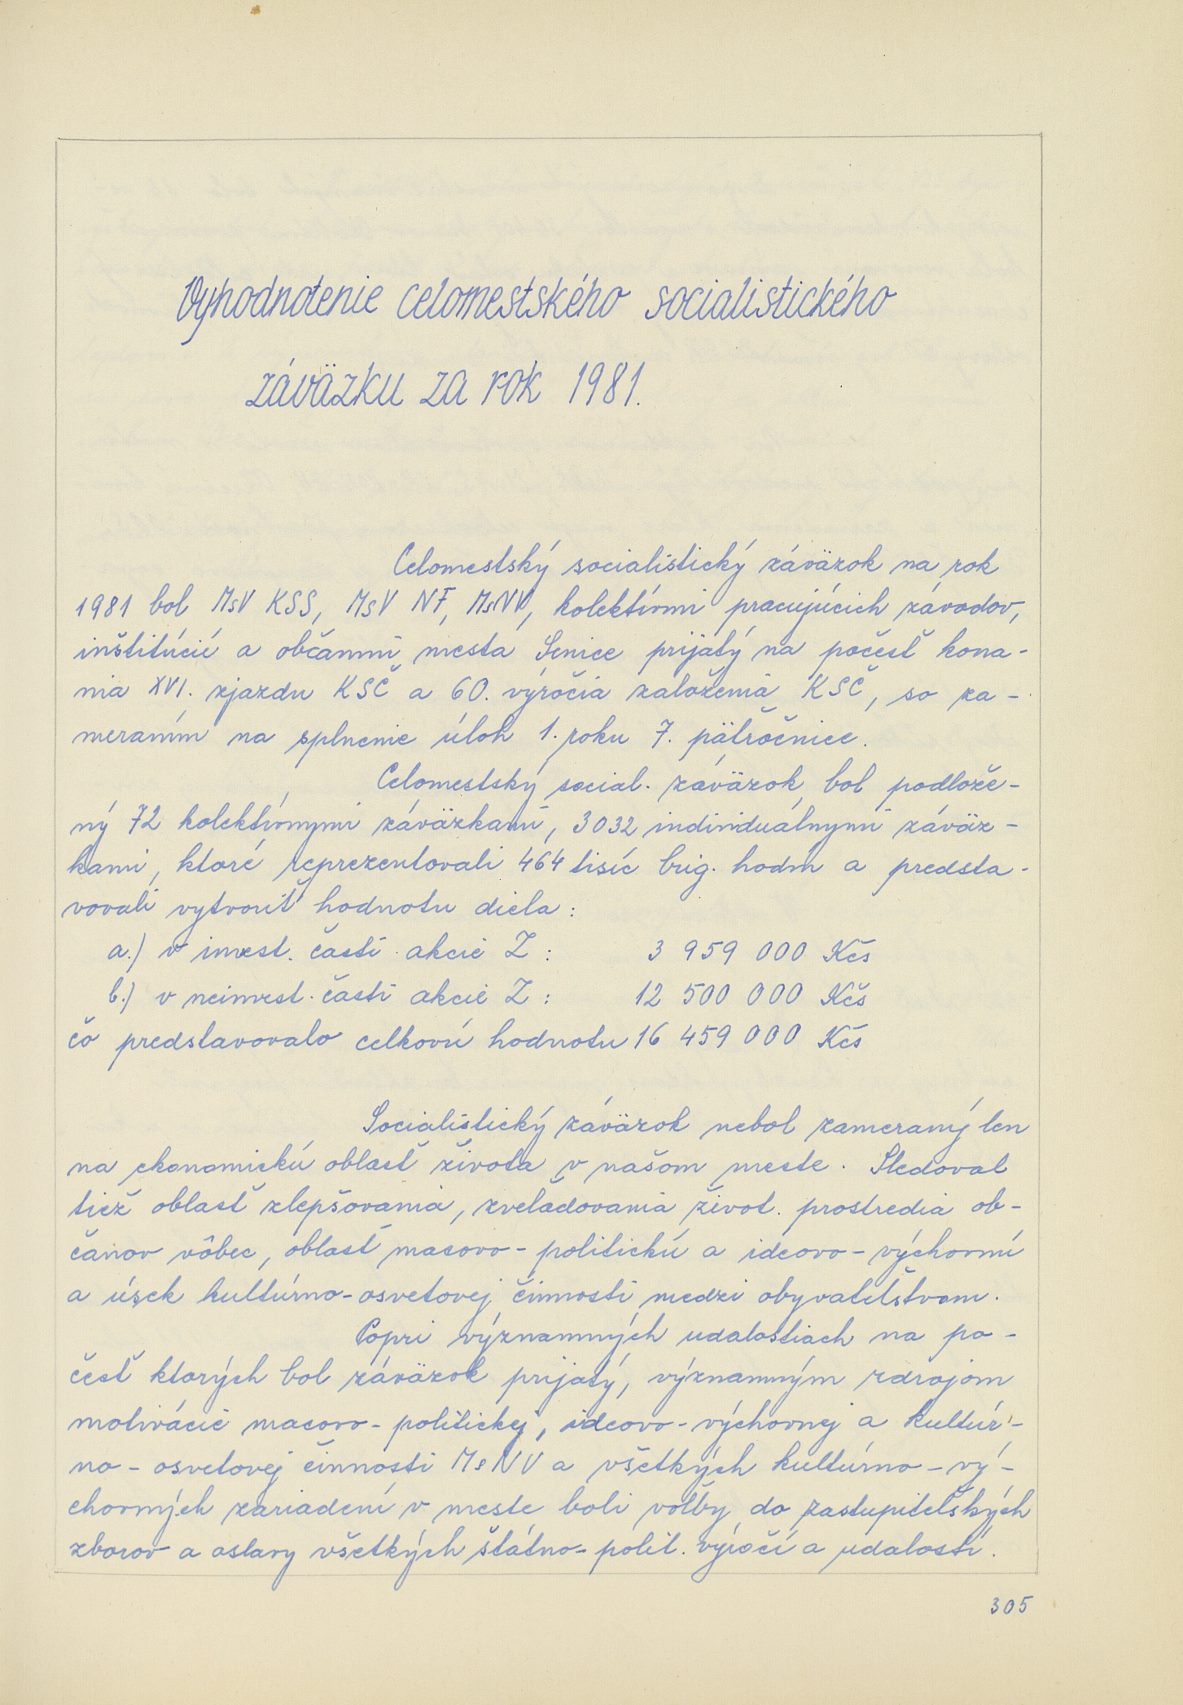 Vyhodnotenie celomestského socialistického
záväzku za rok 1981.
Celomestský socialistický záväzok na rok
1981 bol MsV KSS, MsV NF, MsNV, kolektívmi pracujúcich závodov,
inštitúcií a občanmi mesta Senice prijatý na počesť kona-
nia XVI. zjazdu KSČ a 60. výročia založenia KSČ, so za-
meraním na splnenie úloh 1. roku 7. päťročnice.
Celomestský social. záväzok bol podlože-
ný 72 kolektívnymi záväzkami, 3032 individuálnymi záväz-
kami, ktoré reprezentovali 464 tisíc brig. hodín a predsta-
vovali vytvoriť hodnotu diela:
a.) v invest. časti akcie Z: 3 959 000 Kčs
b.) v neinvest. časti akcie Z: 12 500 000 Kčs
čo predstavovalo celkovú hodnotu 16 459 000 Kčs
Socialistický záväzok nebol zameraný len
na ekonomickú oblasť života v našom meste. Sledoval
tiež oblasť zlepšovania, zveľaďovania život. prostredia ob-
čanov vôbec, oblasť masovo-politickú a ideovo-výchovnú
a úsek kultúrno-osvetovej činnosti medzi obyvateľstvom.
Popri významných udalostiach na po-
česť ktorých bol záväzok prijatý, významným zdrojom
motivácie masovo-politickej, ideovo-výchovnej a kultúr-
no-osvetovej činnosti MsNV a všetkých kultúrno-vý-
chovných zariadení v meste boli voľby do zastupiteľských
zborov a oslavy všetkých štátno-polit. výročí a udalostí.
305